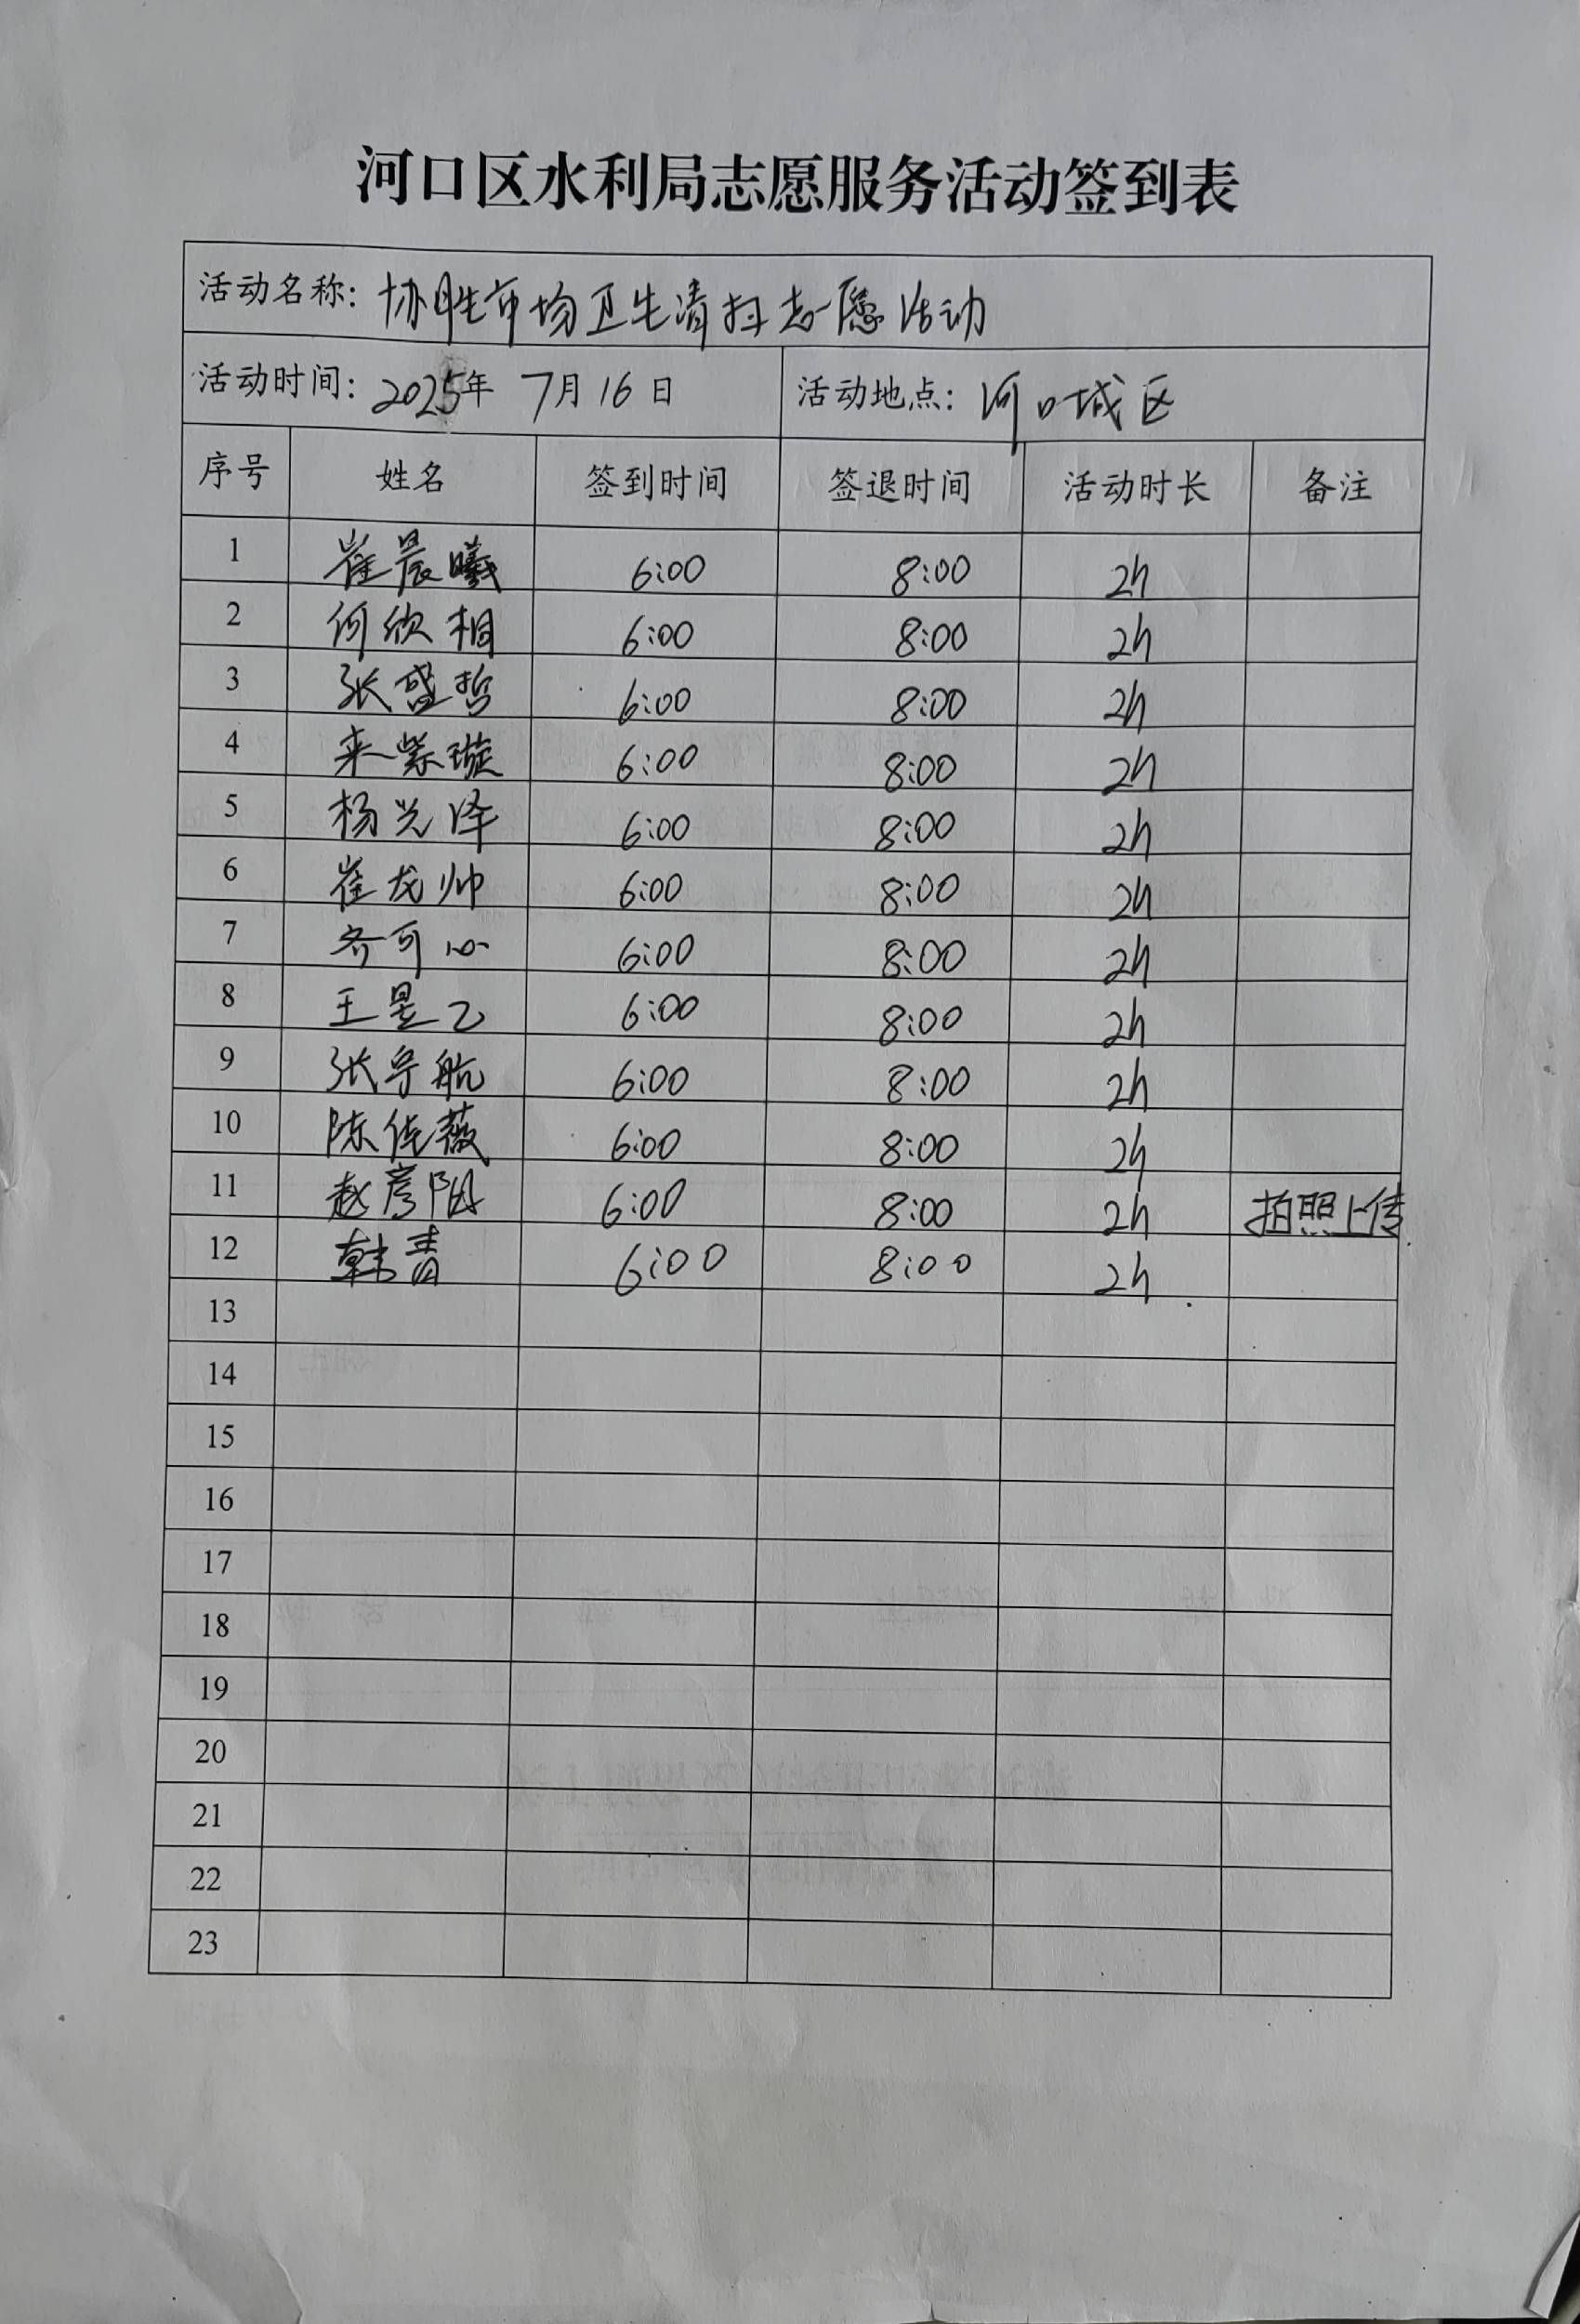 河口区水利局志愿服务活动签到表
活动名称：协胜市场卫生清扫志愿活动
活动时间：2025年 7月16日 活动地点：河口城区
序号 姓名 签到时间 签退时间 活动时长 备注
1 崔晨曦 6:00 8:00 2h
2 何欣桐 6:00 8:00 2h
3 张盛哲 6:00 8:00 2h
4 来紫璇 6:00 8:00 2h
5 杨兴泽 6:00 8:00 2h
6 崔龙帅 6:00 8:00 2h
7 齐可心 6:00 8:00 2h
8 王昱乙 6:00 8:00 2h
9 张宇航 6:00 8:00 2h
10 陈佳薇 6:00 8:00 2h
11 赵彦阳 6:00 8:00 2h 拍照上传
12 韩青 6:00 8:00 2h
13
14
15
16
17
18
19
20
21
22
23